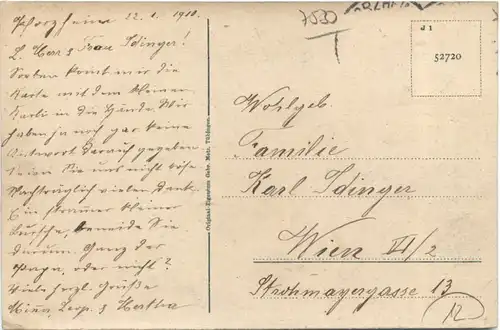 Pforzheim 22.1.1910.
L. Herr & Frau Idinger!
Soeben kommt mir die
Karte mit dem kleinen
Karli in die Hände. Wir
haben ja noch gar keine
Antwort darauf gegeben
seien Sie uns nicht böse.
Nachträglich vielen Dank
Ein strammer kleiner
Bursche, beneide Sie
darum. Ganz der
Papa, oder nicht?
Viele herzl. Grüße
Leop. & Hertha
Original-Eigentum Gebr. Metz, Tübingen.
7030
J 1
52720
Wohlgeb.
Familie
Karl Idinger
Wien VI/2
Strohmayergasse 13
12